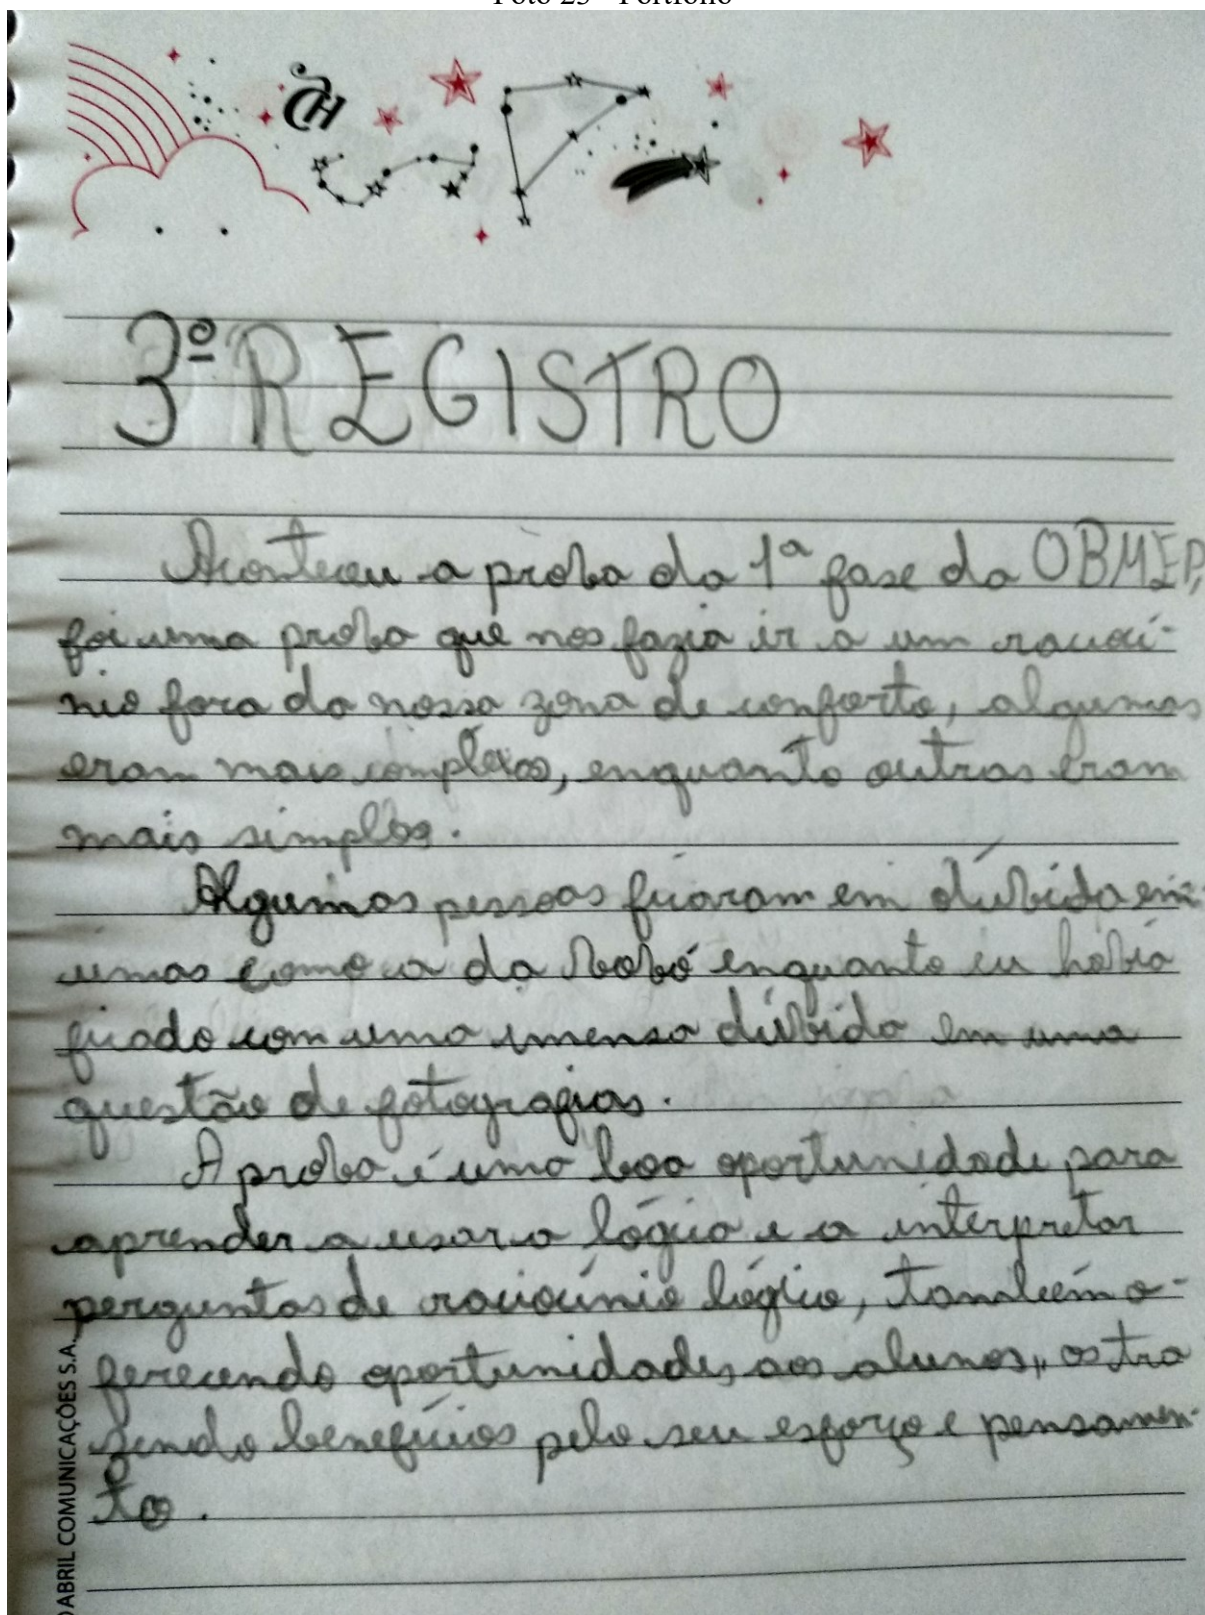 Foto 23 - Portfólio
3º REGISTRO
Aconteceu a prova da 1ª fase da OBMEP,
foi uma prova que nos fazia ir a um raciocí-
nio fora da nossa zona de conforto, algumas
eram mais complexas, enquanto outras eram
mais simples.
Algumas pessoas ficaram em dúvida em
umas como a da vovó enquanto eu havia
ficado com uma imensa dúvida em uma
questão de fotografias.
A prova é uma boa oportunidade para
aprender a usar a lógica e a interpretar
perguntas de raciocínio lógico, também o-
ferecendo oportunidades aos alunos, os tra
zendo benefícios pelo seu esforço e pensamen-
to.
ABRIL COMUNICAÇÕES S.A.